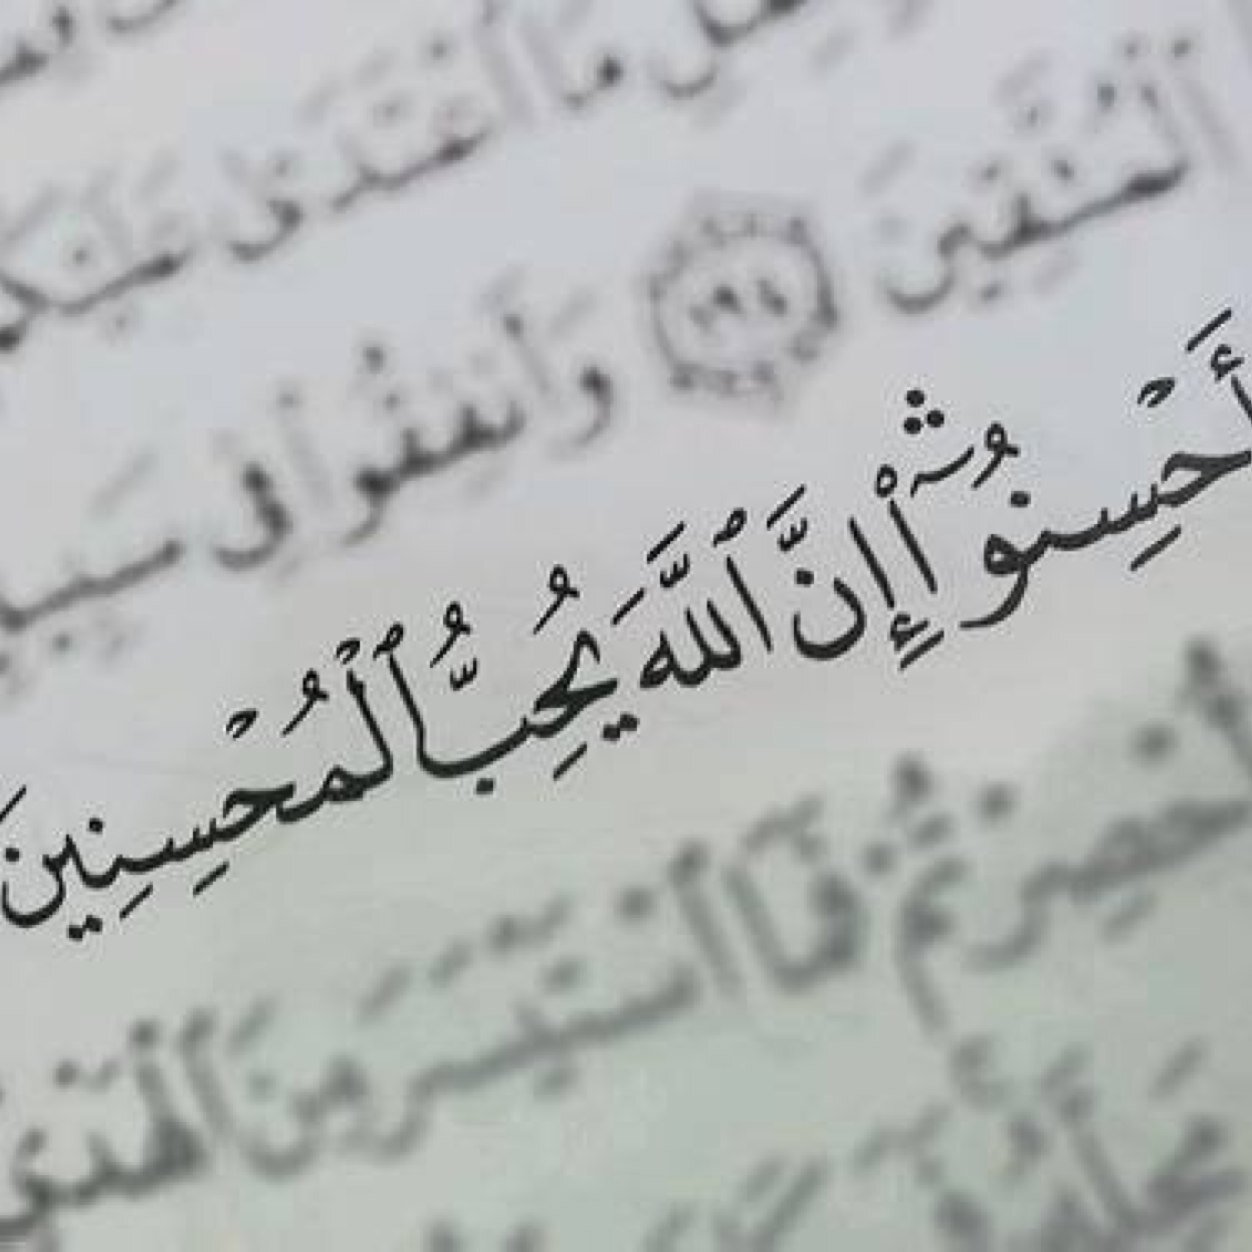 ل ما ٱعتدى عليكم
ٱلمتقين ١٩٤ وأنفقوا في سبيـ
أَحْسِنُوٓا۟ ۛ إِنَّ ٱللَّهَ يُحِبُّ ٱلْمُحْسِنِينَ
أحصرتم فما ٱستيسر من ٱلهدي
محله